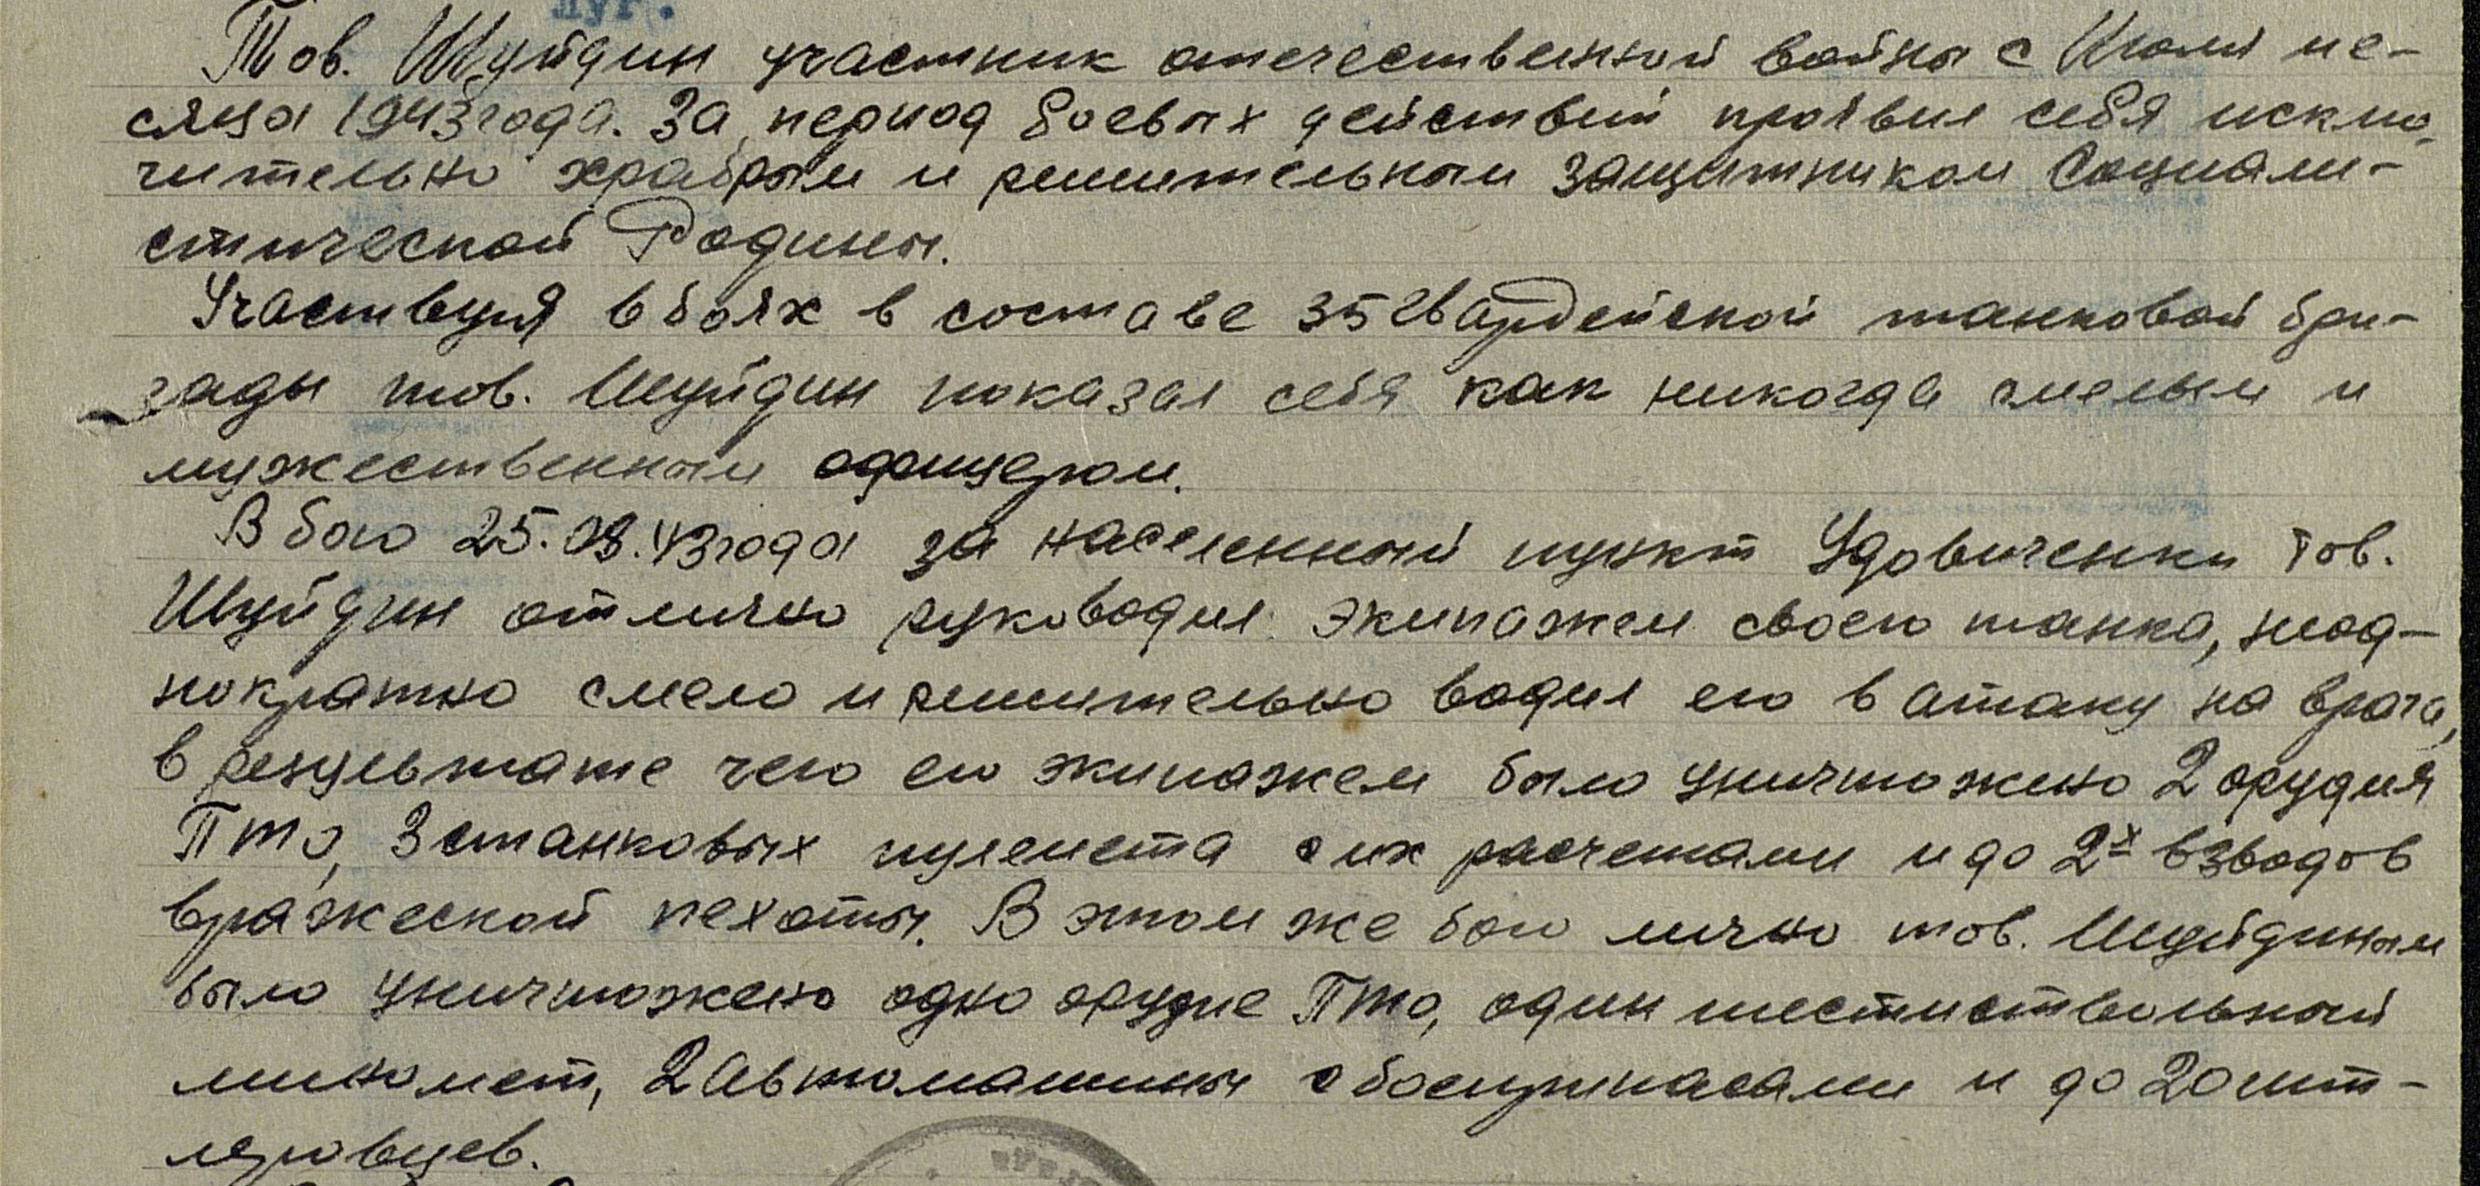 Тов. Шуйдин участник отечественной войны с Июля ме-
сяца 1943 года. За период боевых действий проявил себя исклю-
чительно храбрым и решительным защитником Социали-
стической Родины.
Участвуя в боях в составе 35 гвардейской танковой бри-
гады тов. Шуйдин показал себя как никогда смелым и
мужественным офицером.
В бою 25.08.43 года за населенный пункт Удовиченки тов.
Шуйдин отлично руководил экипажем своего танка, неод-
нократно смело и решительно водил его в атаку на врага,
в результате чего его экипажем было уничтожено 2 орудия
ПТО, 3 станковых пулемета с их расчетами и до 2х взводов
вражеской пехоты. В этом же бою лично тов. Шуйдиным
было уничтожено одно орудие ПТО, один шестиствольный
миномет, 2 автомашины с боеприпасами и до 20 гит-
леровцев.